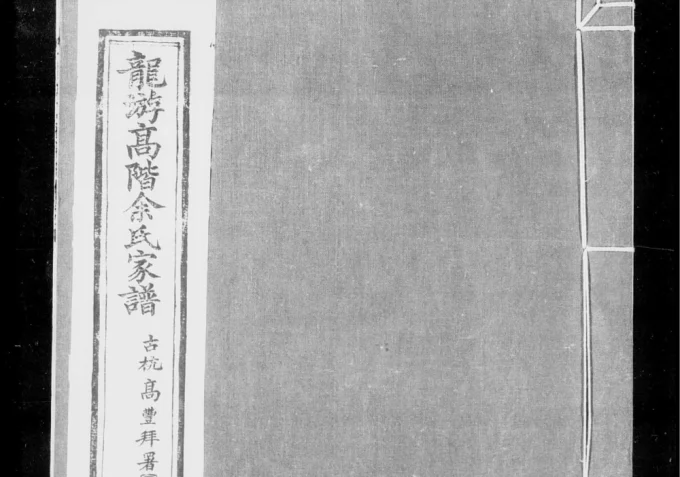 龍游高階余氏家譜
古杭高豐拜署